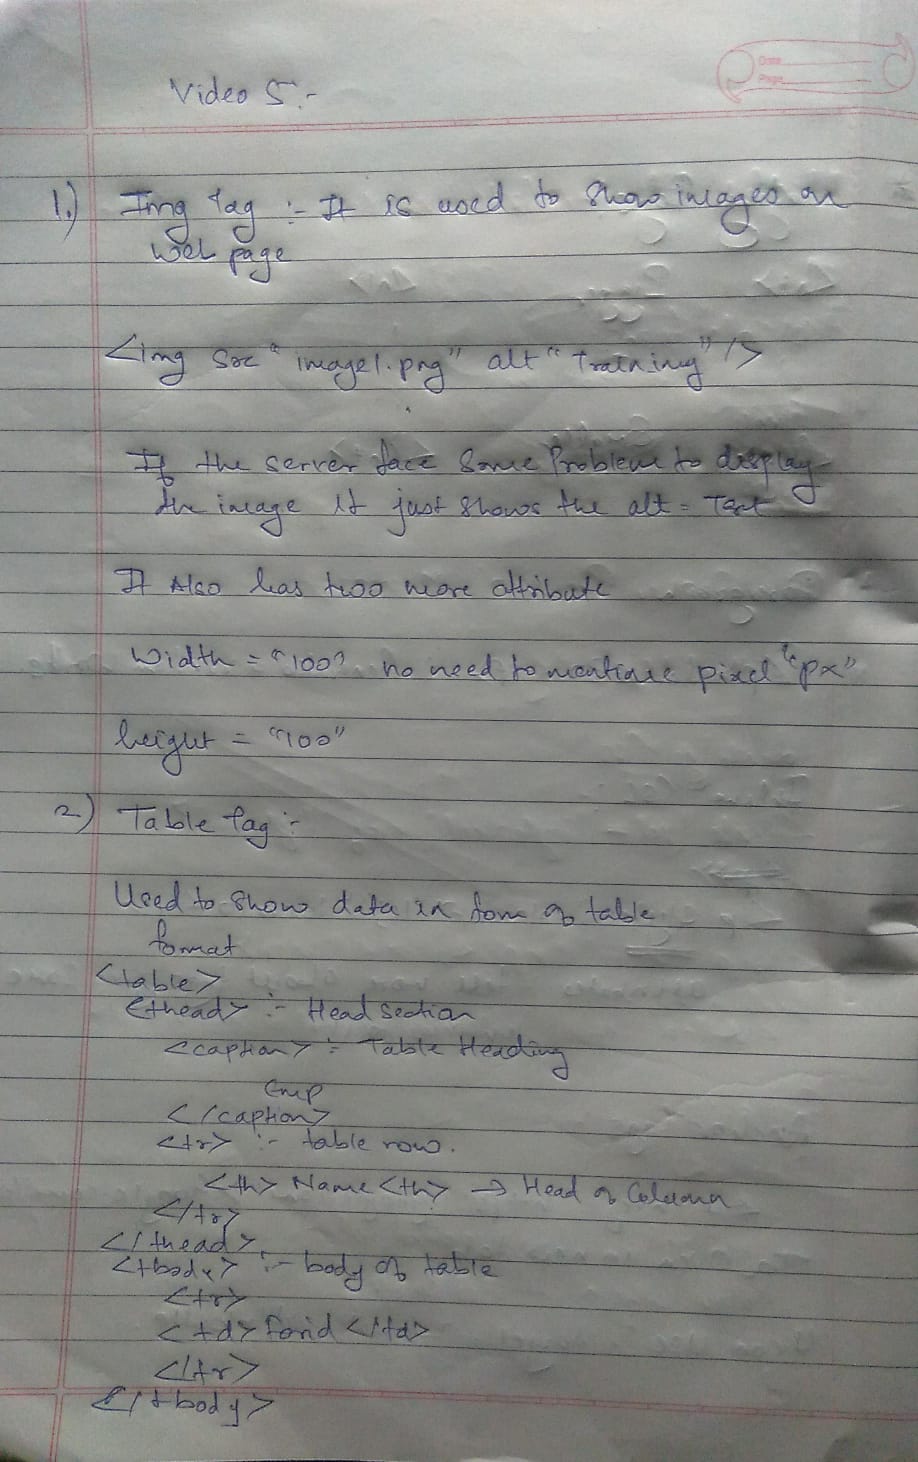 Date
Page
Video 5:-
1.) Img Tag :- It is used to show images on
web page
<img src "image1.png" alt "Training" />
If the server face some Problem to display
the image it just shows the alt = Text
It Also has two more attribute
Width = "100" no need to mentione pixel "px"
height = "100"
2.) Table tag :-
Used to show data in form of table
format
<table>
<thead> :- Head section
<caption> :- Table Heading
Emp
</caption>
<tr> :- table row.
<th> Name <th> → Head of Column
</tr>
</thead>
<tbody> :- body of table
<tr>
<td> Farid </td>
</tr>
</tbody>